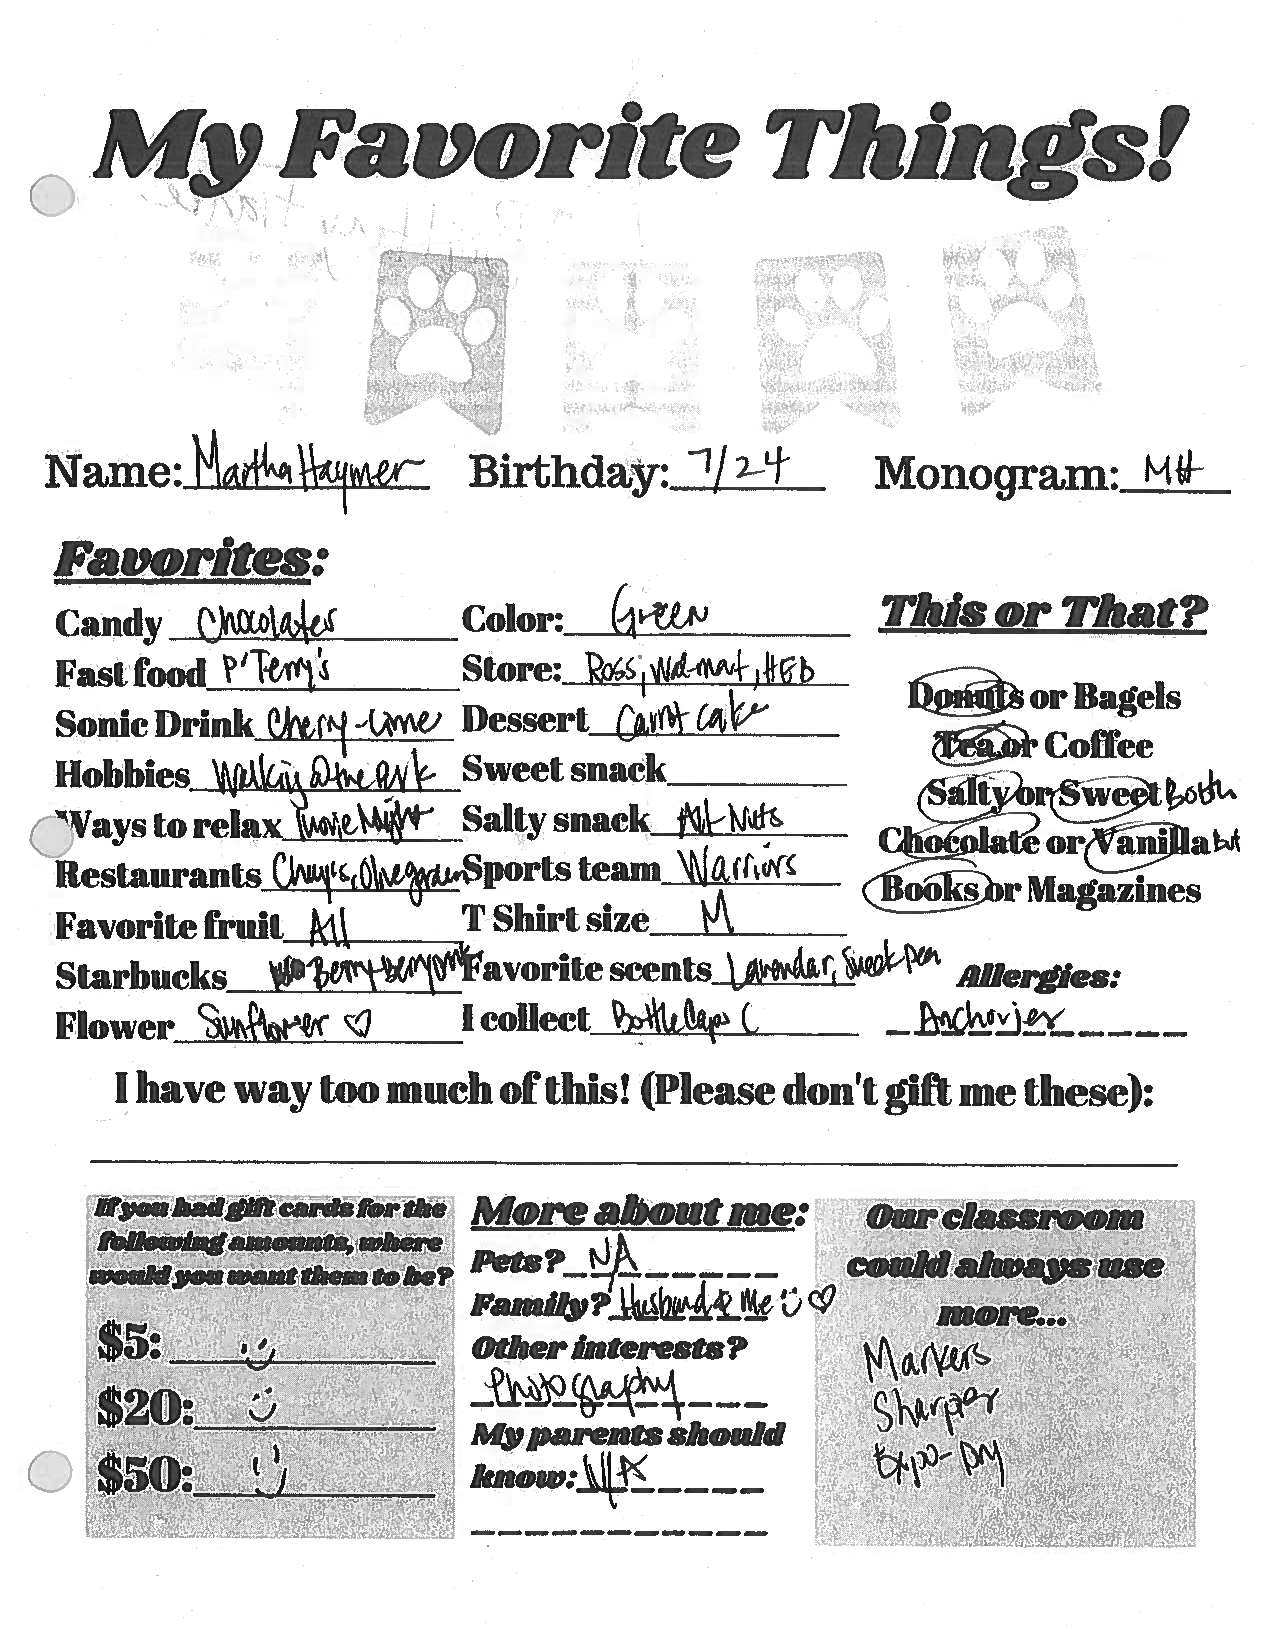 My Favorite Things!
Name: Martha Haymer Birthday: 7/24 Monogram: MH
Favorites:
Candy Chocolates
Fast food P'Terry's
Sonic Drink Cherry-Lime
Hobbies Walking @ the park
Ways to relax Movie Night
Restaurants Chuy's, Olive garden
Favorite fruit All
Starbucks Berry-Berry
Flower Sunflower ♡
Color: Green
Store: Ross, Wal-mart, HEB
Dessert Carrot cake
Sweet snack
Salty snack Nuts
Sports team Warriors
T Shirt size M
Favorite scents Lavendar, Sweet pea
I collect Bottle Caps (
This or That?
Donuts or Bagels
Tea or Coffee
Salty or Sweet Both
Chocolate or Vanilla
Books or Magazines
Allergies:
Anchovies
I have way too much of this! (Please don't gift me these):
If you had gift cards for the
following amounts, where
would you want them to be?
$5: :)
$20: :)
$50: :)
More about me:
Pets? NA
Family? Husband & Me :) ♡
Other interests?
Photography
My parents should
know: N/A
Our classroom
could always use
more...
Markers
Sharpies
Expo-Dry